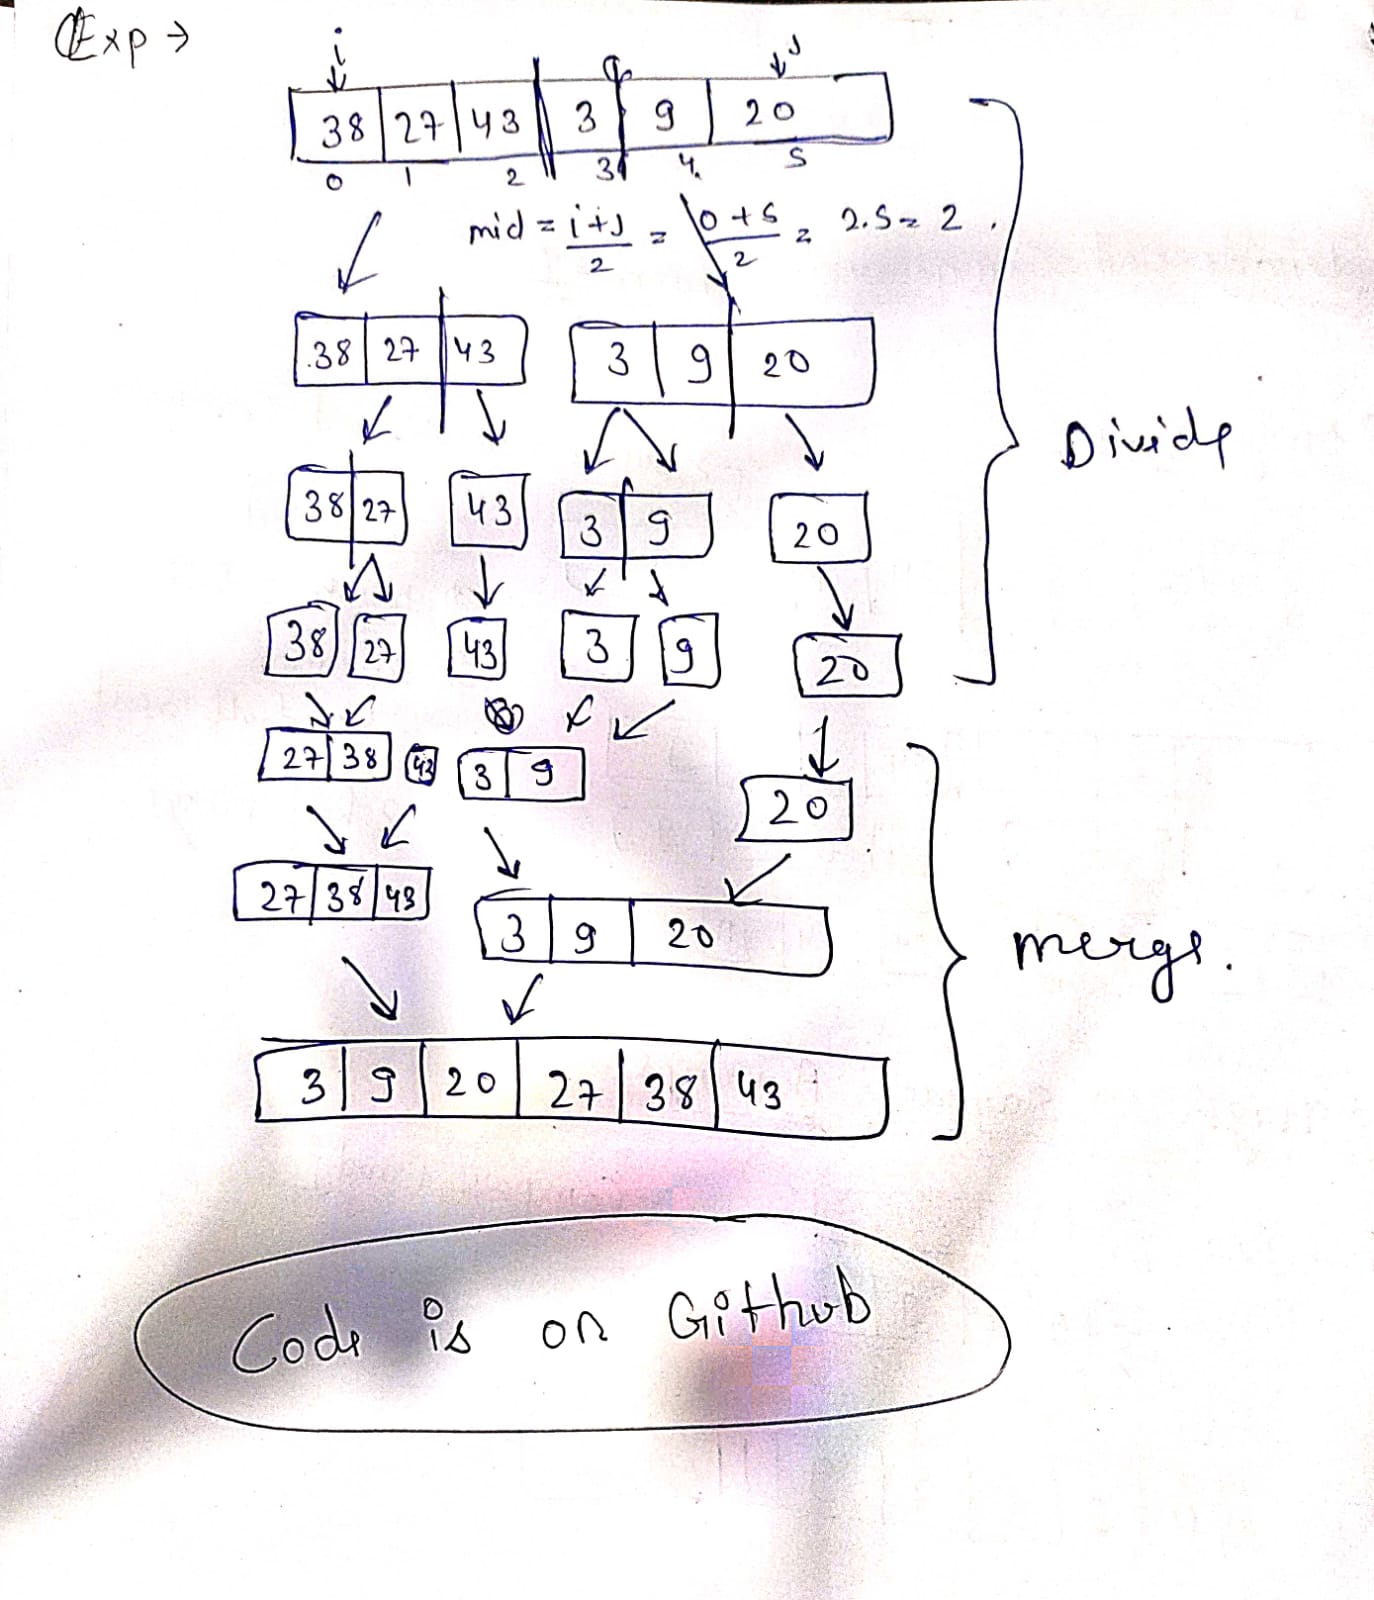 Exp →
i j
38 27 43 3 9 20
0 1 2 3 4 5
mid = i+j/2 = 0+5/2 = 2.5 = 2
38 27 43 3 9 20
Divide
38 27 43 3 9 20
38 27 43 3 9 20
27 38 43 3 9
20
27 38 43 3 9 20
merge.
3 9 20 27 38 43
Code is on Github